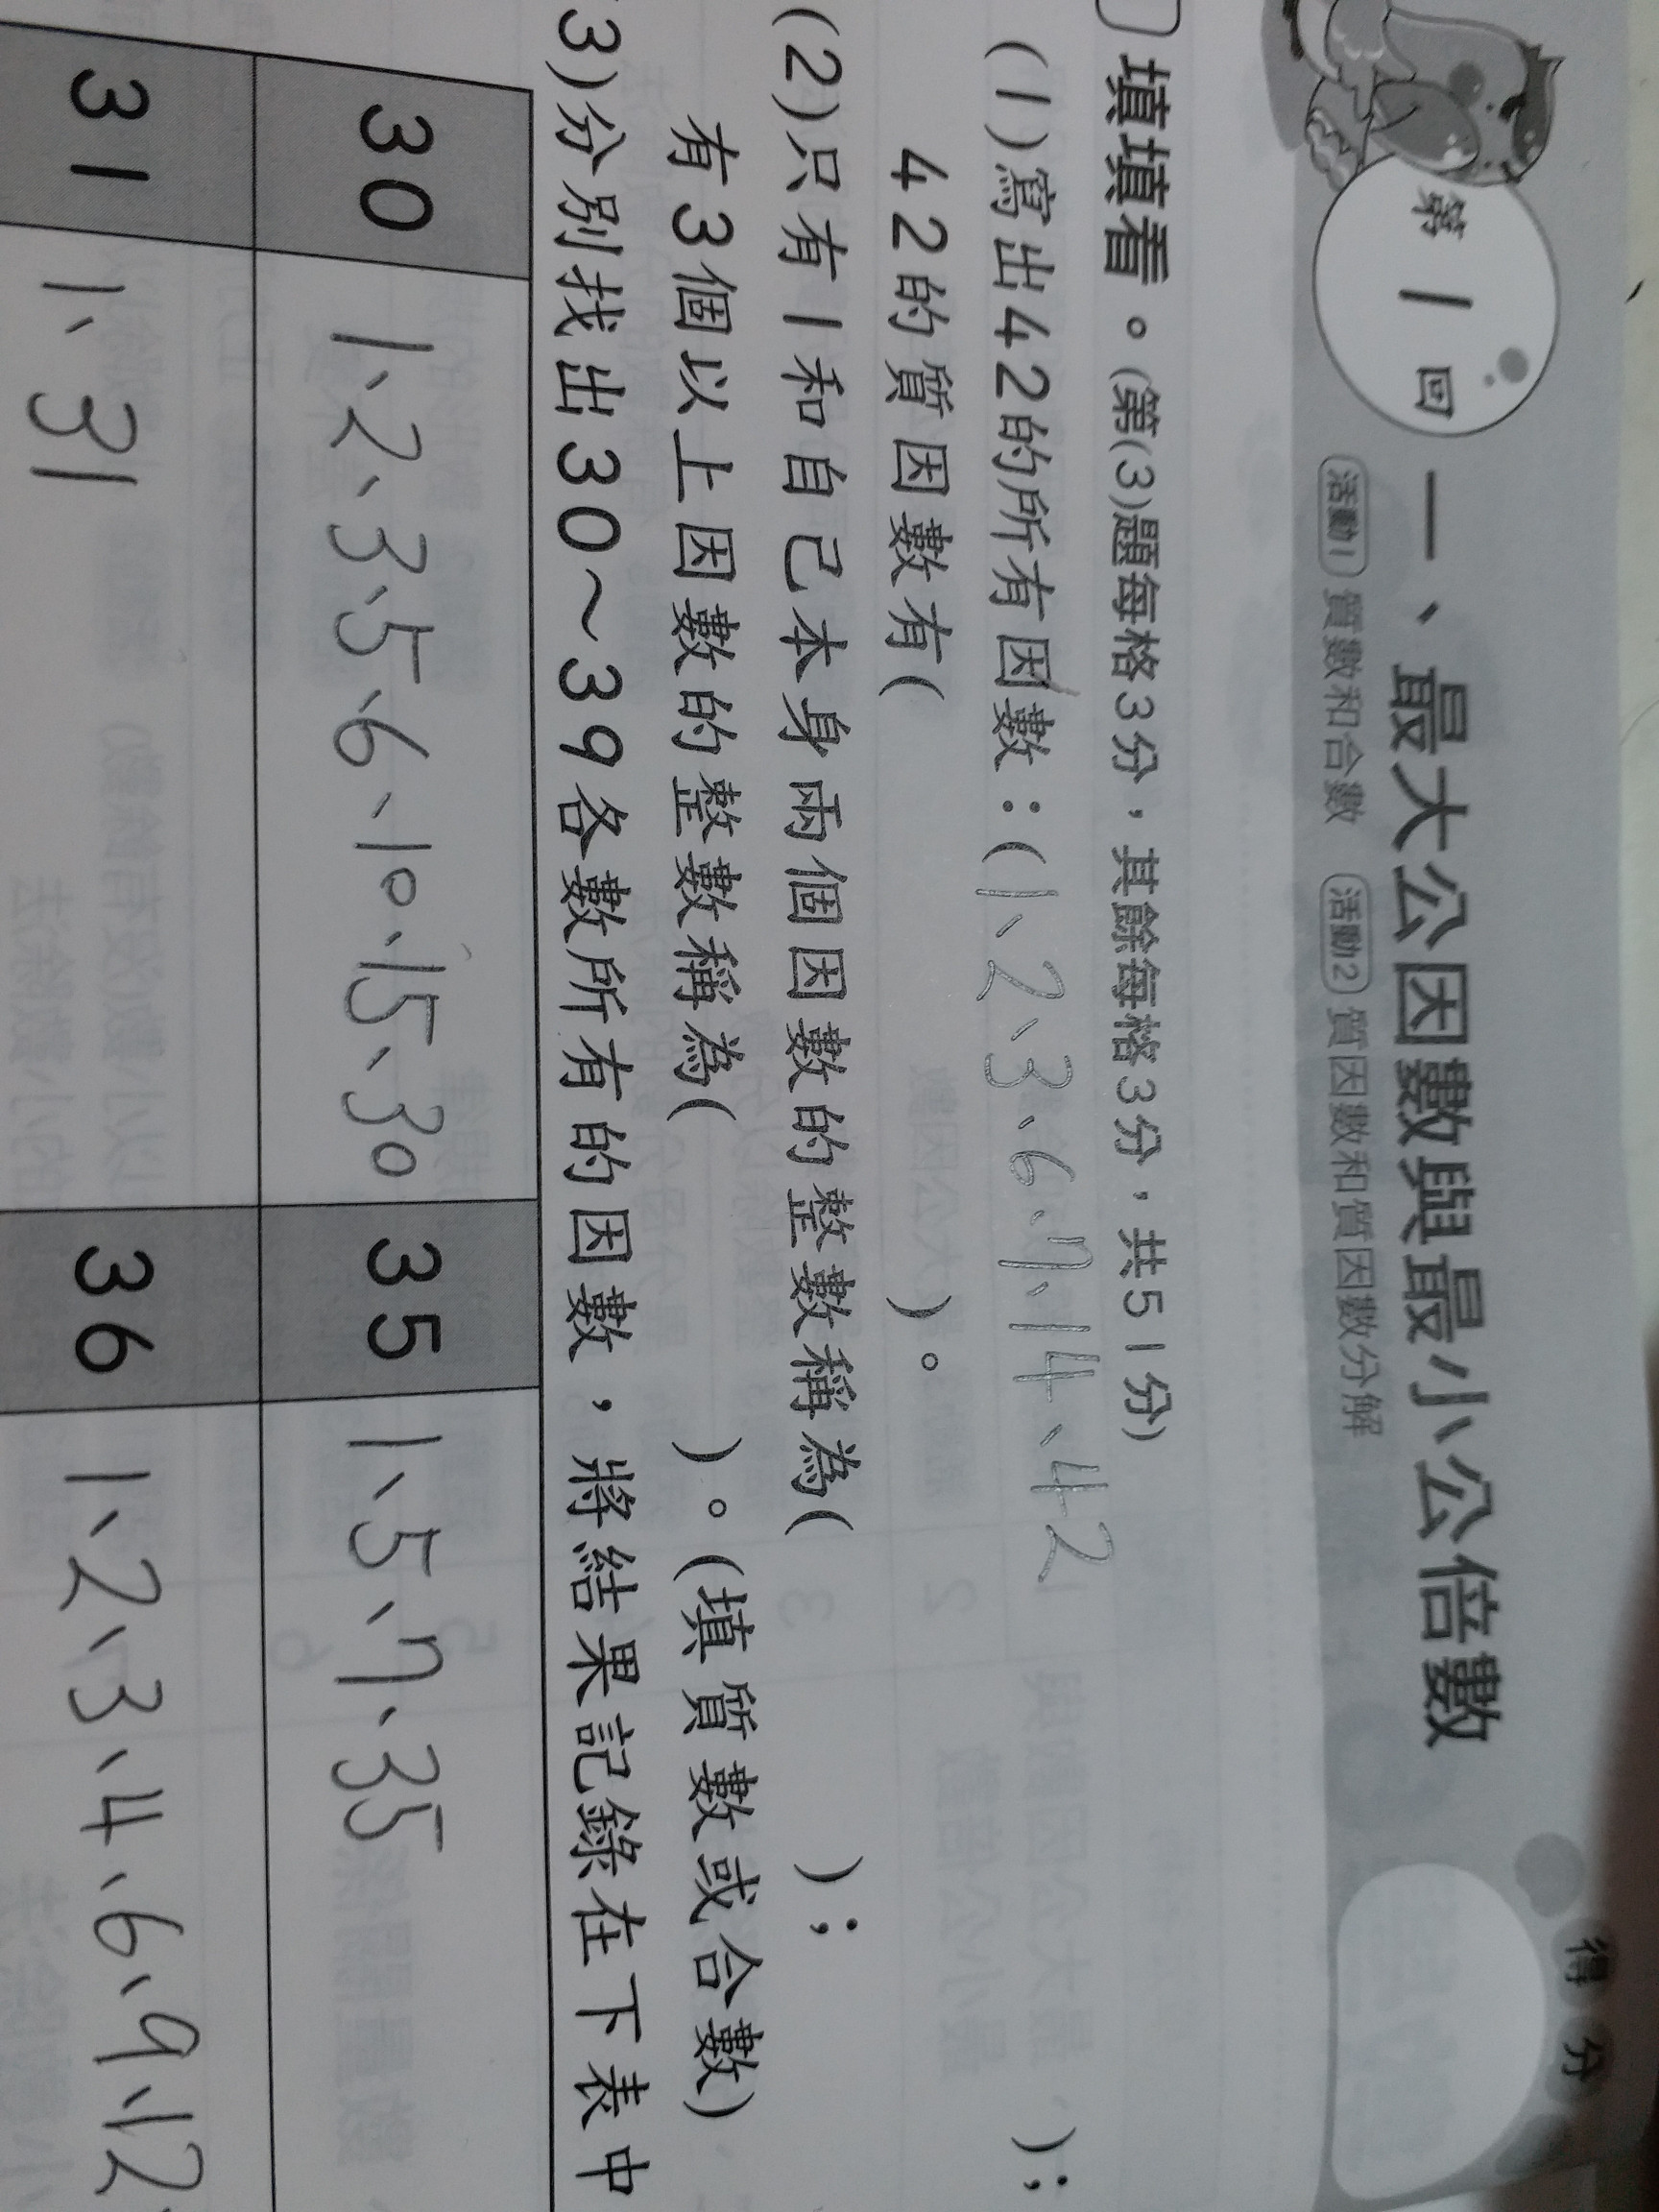 第1回
一、最大公因數與最小公倍數
得分
活動1 質數和合數 活動2 質因數和質因數分解
填填看。(第(3)題每格3分，其餘每格3分，共51分)
(1)寫出42的所有因數：(1、2、3、6、7、14、42 )；
42的質因數有( )。
(2)只有1和自己本身兩個因數的整數稱為( )；
有3個以上因數的整數稱為( )。(填質數或合數)
3)分別找出30～39各數所有的因數，將結果記錄在下表中
30 1、2、3、5、6、10、15、30 35 1、5、7、35
31 1、31 36 1、2、3、4、6、9、12、